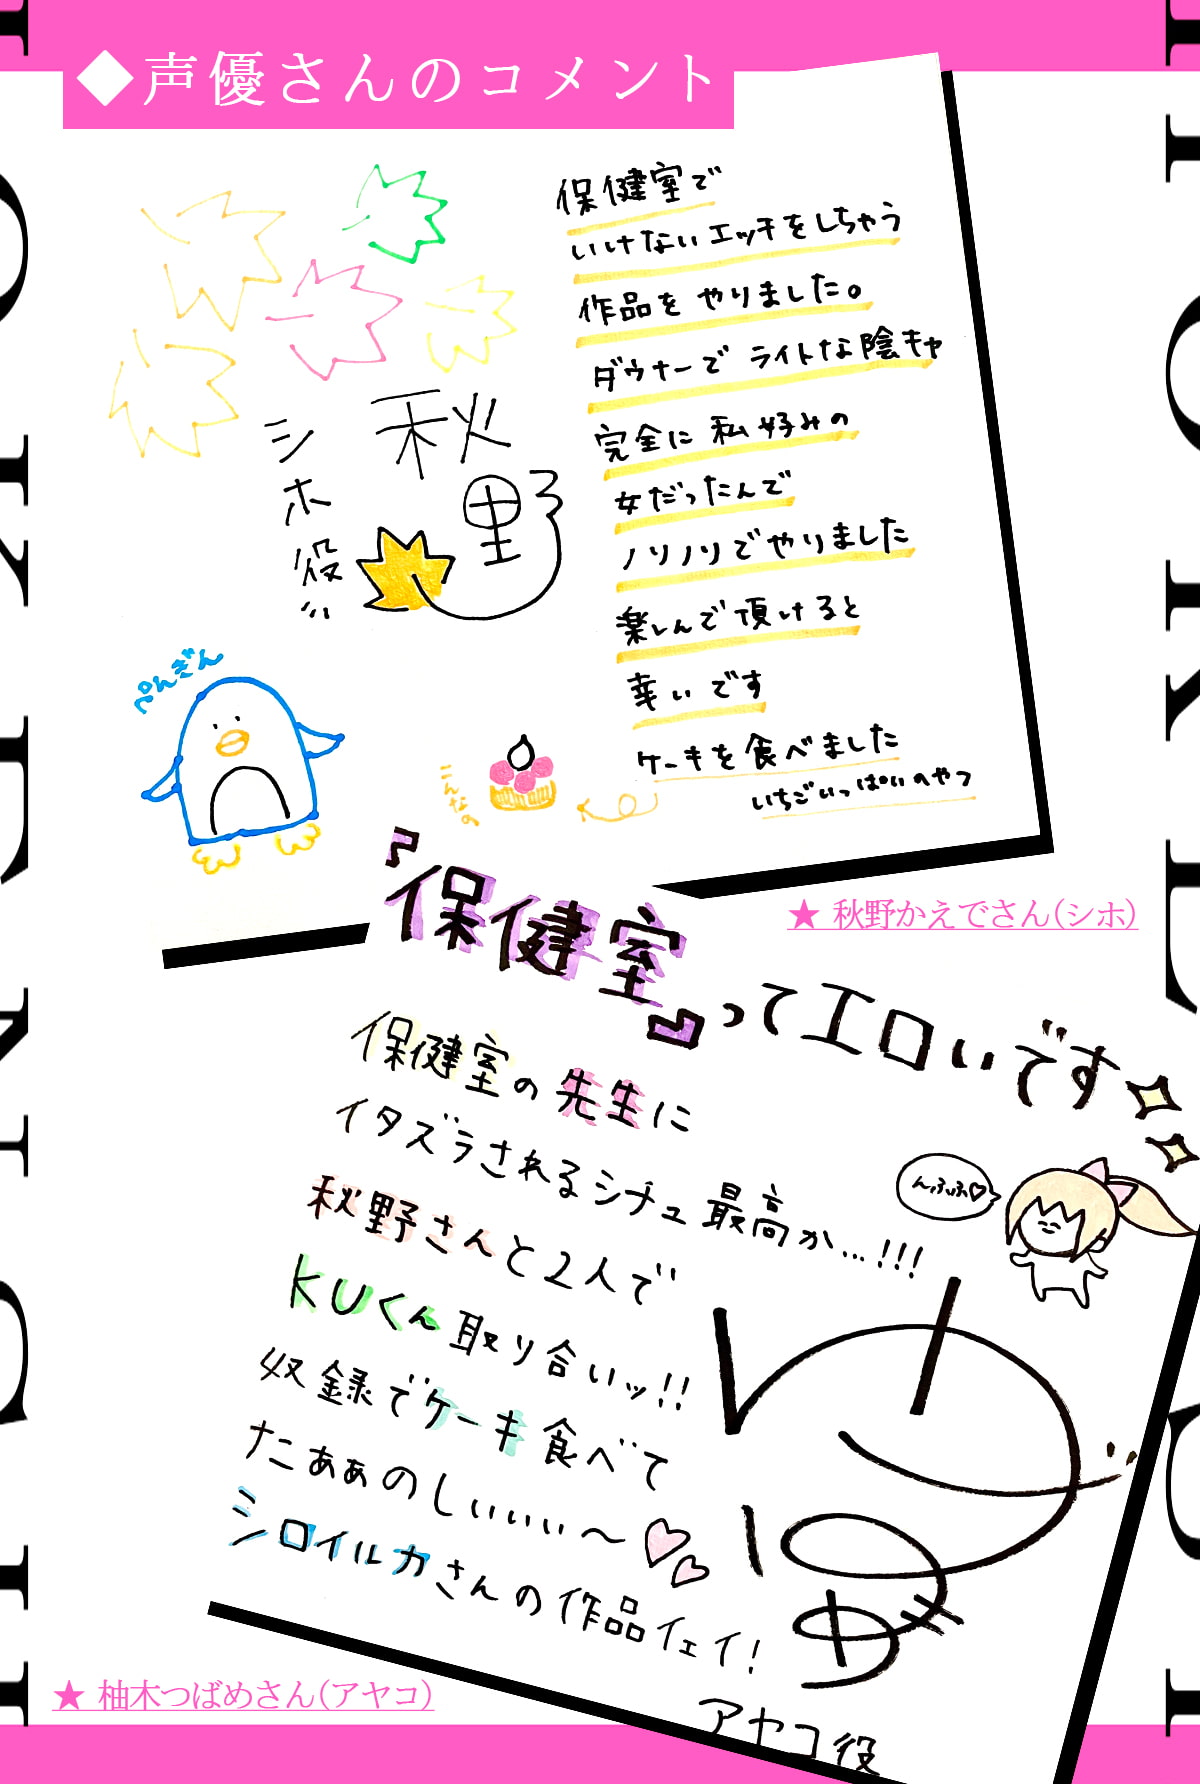 ◆声優さんのコメント
保健室で
いけないエッチをしちゃう
作品を やりました。
ダウナーで ライトな陰キャ
完全に 私好みの
女だったんで
ノリノリでやりました
楽しんで頂けると
幸いです
ケーキを食べました
いちごいっぱいのやつ
こんなの
シホ役
秋野
ぺんぎん
★ 秋野かえでさん(シホ)
『保健室』ってエロいです
保健室の先生に
イタズラされるシチュ最高か…!!!
秋野さんと2人で
KUくん取り合いッ!!
収録でケーキ食べて
たこぁぁのしぃぃぃ〜
シロイルカさんの作品イェイ!
んふふ♡
アヤコ役
★ 柚木つばめさん(アヤコ)